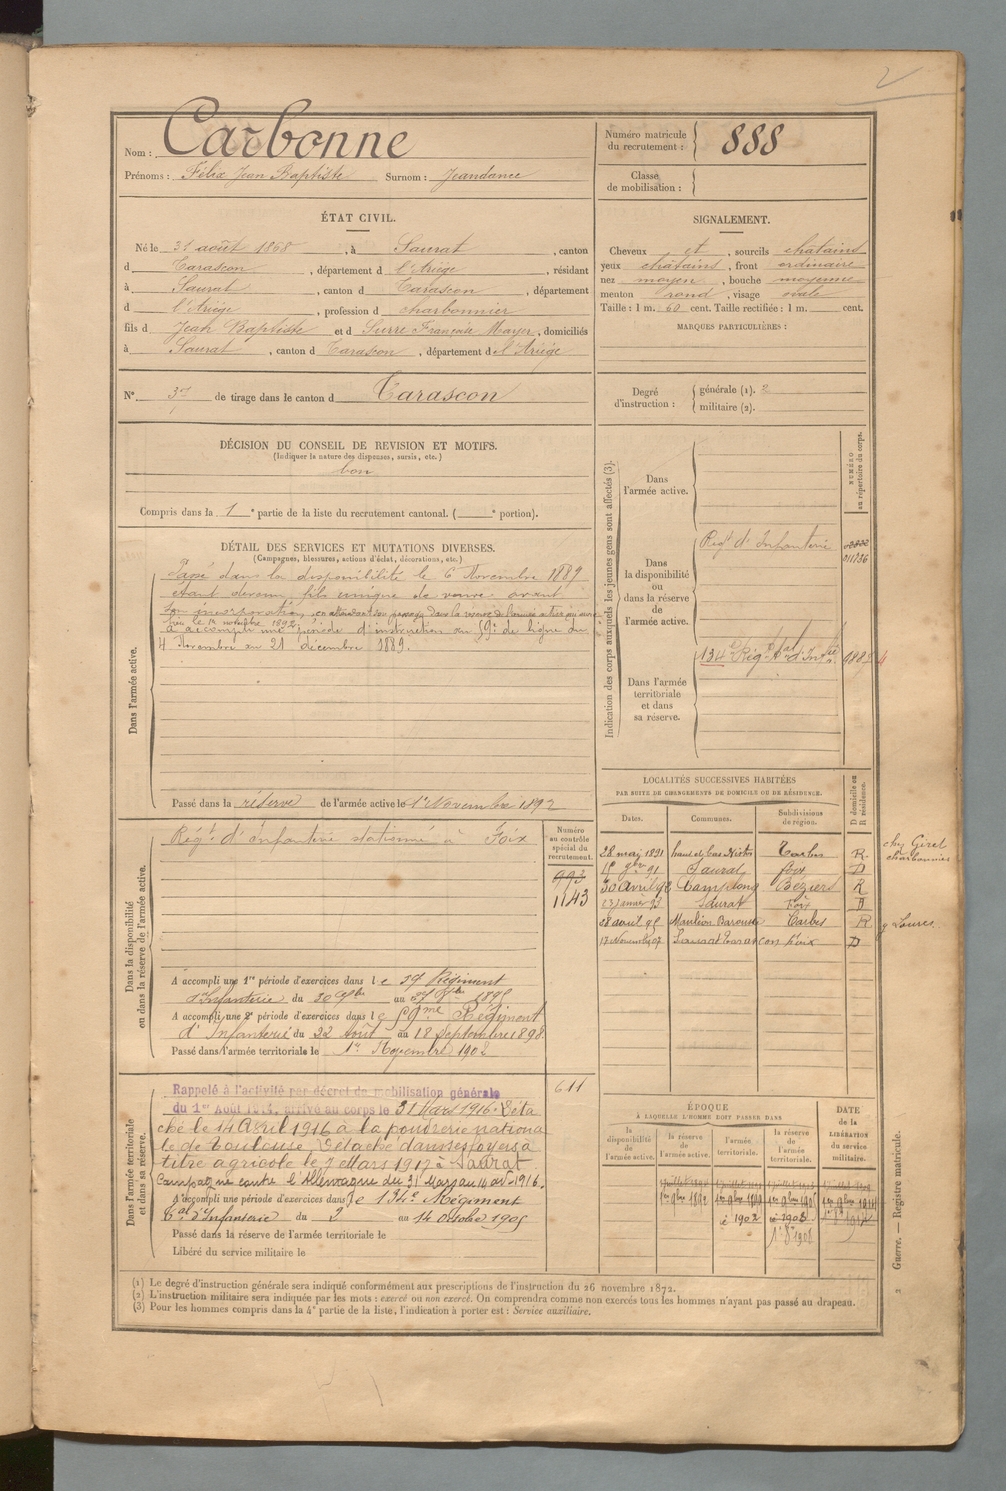 Nom : Carbonne
Prénoms : Félix Jean Baptiste Surnom : Jeandance
ÉTAT CIVIL.
Né le 31 août 1868, à Saurat, canton
d Tarascon, département d l'Ariège, résidant
à Saurat, canton d Tarascon, département
d l'Ariège, profession d charbonnier
fils d Jean Baptiste et d Surre Françoise Mayer, domiciliés
à Saurat, canton d Tarascon, département d l'Ariège
N° 37 de tirage dans le canton d Tarascon
DÉCISION DU CONSEIL DE REVISION ET MOTIFS.
(Indiquer la nature des dispenses, sursis, etc.)
bon
Compris dans la 1e partie de la liste du recrutement cantonal. ( e portion).
DÉTAIL DES SERVICES ET MUTATIONS DIVERSES.
(Campagnes, blessures, actions d'éclat, décorations, etc.)
Dans l'armée active.
Passé dans la disponibilité le 6 Novembre 1889
étant devenu fils unique de veuve avant
son incorporation, en attendant son passage dans la réserve de l'armée active qui aura
lieu le 1er novembre 1892.
a accompli une période d'instruction au 59e de ligne du
4 Novembre au 21 décembre 1889.
Passé dans la réserve de l'armée active le 1er Novembre 1892
Dans la disponibilité
ou dans la réserve de l'armée active.
Régt d'infanterie stationné à Foix
Numéro
au contrôle
spécial du
recrutement.
993
1143
A accompli une 1re période d'exercices dans le 59 Régiment
d'Infanterie du 30 7bre au 1895
A accompli une 2e période d'exercices dans le 59me Régiment
d'Infanterie du 22 Août au 18 Septembre 1898.
Passé dans l'armée territoriale le 1er Novembre 1902
Dans l'armée territoriale
et dans sa réserve.
611
Rappelé à l'activité par décret de mobilisation générale
du 1er Août 1914, arrivé au corps le 31 Mars 1916. Déta
ché le 14 Avril 1916 à la poudrerie nationa
le de Toulouse. Détaché dans ses foyers à
titre agricole le 7 Mars 1917 à Saurat
Campagne contre l'Allemagne du 31 Mars au 14 avr. 1916.
A accompli une période d'exercices dans le 134e Régiment
tal d'Infanterie du 2 au 14 octobre 1905
Passé dans la réserve de l'armée territoriale le
Libéré du service militaire le
Numéro matricule
du recrutement : 888
Classe
de mobilisation :
SIGNALEMENT.
Cheveux et, sourcils châtains
yeux châtains, front ordinaire
nez moyen, bouche moyenne
menton rond, visage ovale
Taille : 1 m. 60 cent. Taille rectifiée : 1 m. cent.
MARQUES PARTICULIÈRES :
Degré
d'instruction :
générale (1). 2
militaire (2).
Indication des corps auxquels les jeunes gens sont affectés (3).
NUMÉRO
au répertoire du corps.
Dans
l'armée active.
Dans
la disponibilité
ou
dans la réserve
de
l'armée active.
Régt d'Infanterie
011736
Dans l'armée
territoriale
et dans
sa réserve.
134e Régt tal d'Infie
LOCALITÉS SUCCESSIVES HABITÉES
PAR SUITE DE CHANGEMENTS DE DOMICILE OU DE RÉSIDENCE.
Dates. Communes. Subdivisions de région. D domicile ou R résidence.
28 mai 1891 haut et bas Nistos Tarbes R chez Géret charbonnier
15 9bre 91 Saurat Foix D
30 avril 92 Camplong Béziers R
23 Janvier 93 Saurat Foix D
28 août 95 Mauléon Barousse Tarbes R Loures
17 Novembre 07 Saurat Tarascon Foix D
ÉPOQUE
À LAQUELLE L'HOMME DOIT PASSER DANS
la disponibilité de l'armée active.
la réserve de l'armée active.
l'armée territoriale.
la réserve de l'armée territoriale.
DATE
de la
LIBÉRATION
du service
militaire.
1er 9bre 1892
1902
1908
Guerre. — Registre matricule.
(1) Le degré d'instruction générale sera indiqué conformément aux prescriptions de l'instruction du 26 novembre 1872.
(2) L'instruction militaire sera indiquée par les mots : exercé ou non exercé. On comprendra comme non exercés tous les hommes n'ayant pas passé au drapeau.
(3) Pour les hommes compris dans la 4e partie de la liste, l'indication à porter est : Service auxiliaire.